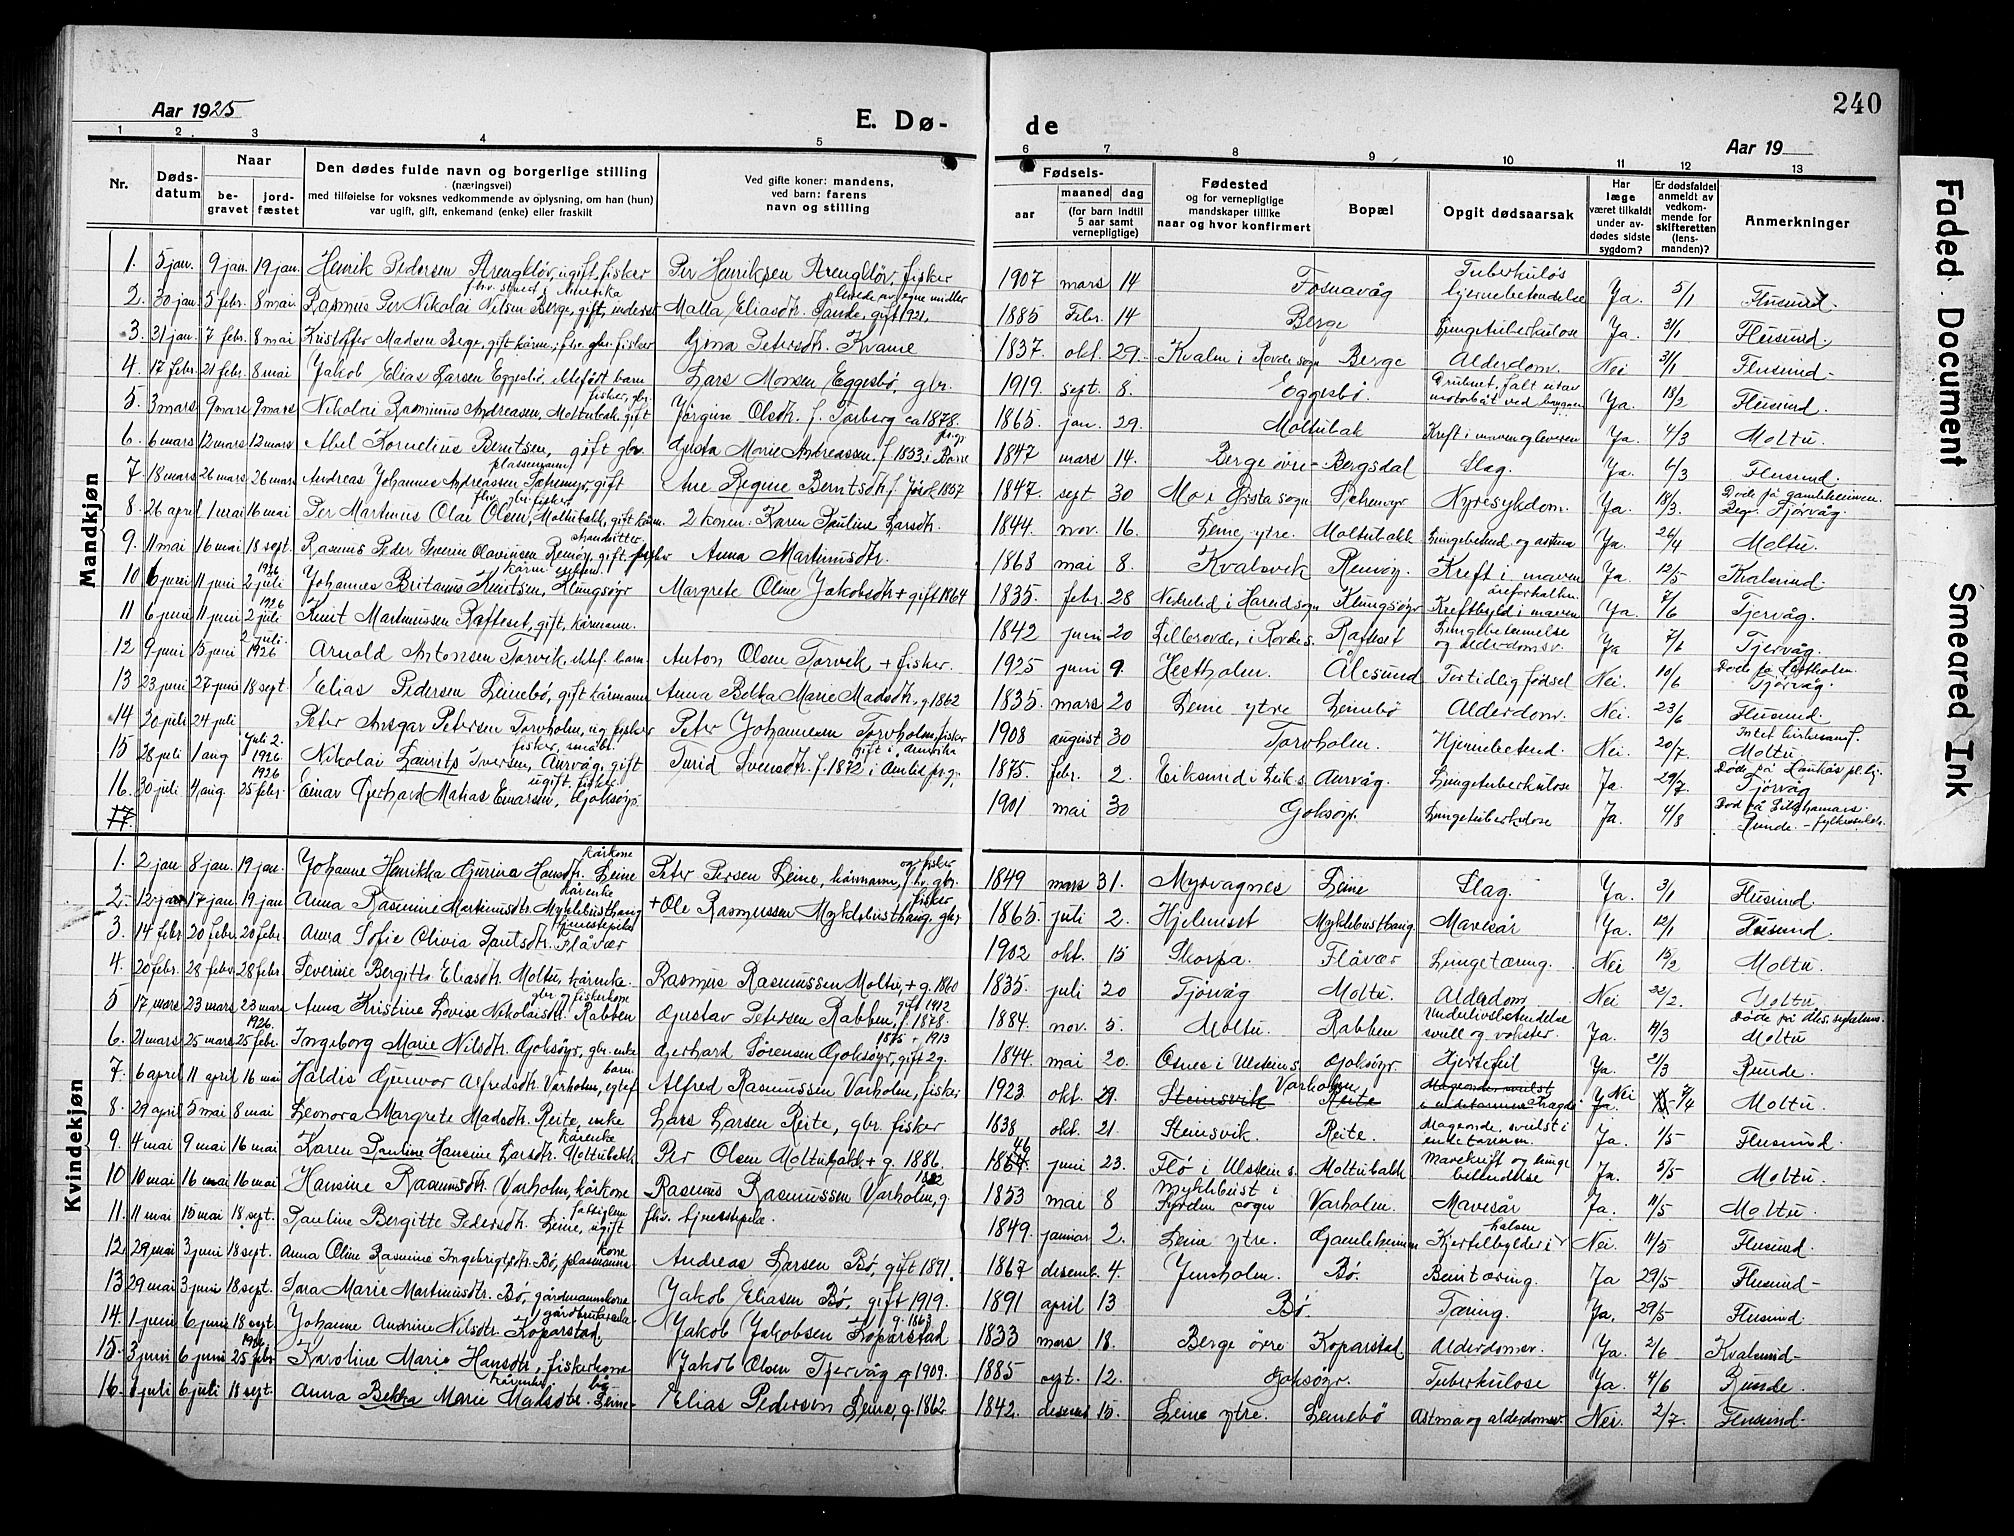 240
Aar 1925
E. Dø-
de
Aar 19
1 2 3 4 5 6 7 8 9 10 11 12 13
Nr.
Døds-
datum
Naar
be-
gravet
jord-
fæstet
Den dødes fulde navn og borgerlige stilling
(næringsvei)
med tilføielse for voksnes vedkommende av oplysning, om han (hun)
var ugift, gift, enkemand (enke) eller fraskilt
Ved gifte koner: mandens,
ved barn: farens
navn og stilling
Fødsels-
aar
maaned dag
(for barn indtil
5 aar samt
vernepligtige)
Fødested
og for vernepligtige
mandskaper tillike
naar og hvor konfirmert
Bopæl
Opgit dødsaarsak
Har
læge
været tilkaldt
under av-
dødes sidste
sygdom?
Er dødsfaldet
anmeldt av
vedkom-
mende for
skifteretten
(lens-
manden)?
Anmerkninger
Mandkjøn
1. 5 jan. 9 jan. 19 jan. Henrik Pedersen, ugift, fisker Per Henriksen, fisker 1907 mars 14 Fosnavåg Tuberkuløs hjernebetendelse Ja. 5/1 Flusund.
2. 30 jan. 5 febr. 8 mai Rasmus Per Nikolai Nilsen Berge, gift, Malla Eliasdtr. Sande, gift 1921, 1885 Febr. 14 Berge Lungetuberkulose Ja. 31/1 Flusund.
3. 31 jan. 7 febr. 8 mai Kristoffer Madsen Berge, gift kårm., fhv. gbr. fisker Gjina Petersdtr. Kvame 1837. okt. 29. Kvalm i Rovde sogn Berge Alderdom. Nei 31/1 Flusund-
4. 17 febr. 21 febr. 8 mai Jakob Elias Larsen Eggesbø, ektefødt barn Lars Monsen Eggesbø, gbr. 1919. sept. 8. Eggesbø. Druknet, falt utav motorbåt ved Ja. 18/2 Flusund.
5. 3 mars 9 mars 9 mars Nikolai Rasmus Andreasen, Moltubak, gift fisker, gbr. Jørgine Olsdtr. f. ca 1878. 1865. jan. 29. Moltubak Kreft i maven og leveren Ja. 4/3 Moltu.
6. 6 mars 12 mars 12 mars Abel Kornelius Berntsen, gift gbr. Gusta Marie Andreassen f. 1853 i 1847 mars 14. Berge øvre- Bergsdal Slag. Ja. 6/3 Flusund.
7. 18 mars 26 mars 26 mars Andreas Johannes Andreassen, gift plassmann, Ane Regine Berntsdtr. f. 1857 1847. sept 30 Moe Ørsta sogn Nyresykdom. Ja. 18/3. Døde på gamleheimen. Beg. Tjørvåg.
8. 26 april 1 mai 16 mai Per Martinus Olai Olsen, Moltubakk, gift kårm. fhv. gbr. fisker 2 konen: Karen Pauline Larsdtr. 1844 nov. 16. Leine ytre. Moltubakk Lungebetend og astma Ja 26/4 Moltu.
9. 11 mai 16 mai 18 sept. Rasmus Peder Severin Olavinsen Remøy, gift fisker Anna Martinusdtr. 1868 mai 8. Kvalsvik Remøy. Kreft i maven Ja. 12/5 Kvalsund.
10 6 juni 11 juni 1926 2 juli Johannes Britanus Knutsen, Klungsøyr Margrete Oline Jakobsdtr + gift 1864 1835. febr. 28 i Hareid sogn Klungsøyr Kreftbyld i maven åreforkalkn. Ja. 7/6 Tjervåg.
11 6 juni 11 juni 1926 2 juli Knut Martinussen Rafteset, gift, kårmann. 1842 juni 20 Lillerovde, i Rovde s. Rafteset Lungebetennelse og alderdomsv. Ja 7/6 Tjervåg.
12 9 juni 15 juni 2 juli. 1926 Arnold Antonsen Torvik, ektef. barn Anton Olsen Torvik + fisker. 1925 juni 9. Hestholm. Ålesund Fortidlig fødsel Nei. 10/6 Døde på Hestholm. Tjørvåg.
13 23 juni 27 juni 18 sept. Elias Pedersen Leinebø, gift kårmann Anna Bekka Marie Madsdtr, g 1862 1835. mars 20 Leine ytre Leinebø Alderdom. Nei. 23/6 Flusund.
14 20 juli 24 juli Peter Ansgar Petersen Torvholm, ug. fisker Peter Johannesen Torvholm, fisker 1908 august 30 Torvholm. Hjernebetend. Nei. 20/7. Intet lirkesanf. Moltu
15 28 juli 1 aug Juli 2. 1926. Nikolai Laurits Iversen, Aurvåg, gift fisker, småbr. Turid Svensdtr. f. 1872 i gift i Amerika 1875. febr. 2. Eiksund i Eik s. Aurvåg. Lungetuberkulose Ja. 29/7. Døde på Haukås pl. hj. Tjørvåg
16. 30 juli 4 aug. 1926 25 febr. Einar Gjerhard Matias Einarsen, Goksøyr ugift, fisker 1901 mai 30 Goksøyr. Lungetuberkulose Ja. 4/8 Død på Lillehammer. Runde.
17.
Kvindekjøn
1. 2 jan 8 jan. 19 jan. Johanne Henrikka Gurina Hansdtr. Leine kårkone Peter Persen Leine, kårmann, fhv. gbr. og fisker 1849 mars 31. Myrvagnes Leine Slag Ja. 3/1 Flusund.
2. 12 jan 17 jan 19 jan Anna Rasmine Martinusdtr. Myklebusthaug kårenke + Ole Rasmussen Myklebusthaug. gbr. fisker 1865. juli 2. Hjelmeset Myklebusthaug. Mavesår Ja. 12/1 Flusund.
3. 14 febr 20 febr. 20 febr. Anna Sofie Olivia Flåvær tjenestepike 1902 okt. 15 Skorpa. Flåvær Lungetæring. Nei 15/2 Moltu.
4. 20 febr. 28 febr 28 febr. Severine Bergitte Eliasdtr. Moltu, kårenke. Rasmus Rasmussen Moltu, + g. 1860 1835. juli 20 Tjørvåg Moltu. Alderdom Nei 22/2. Moltu
5 17 mars 23 mars 23 mars Anna Kristine Lovise Nikolaisdtr. Rabben gbr. og fiskerkone Gustav Petersen Rabben, f. 1878. gift 1912 1884. nov. 5. Moltu. Rabben Underlivsbetendelse svull og vokster. Ja. 17/3 Døde på Åles. sykehus. Moltu
6. 21 mars 25 mars 1926. 25 febr. Ingeborg Marie Nilsdtr. Goksøyr, gbr. enke Gjerhard Sørensen Goksøyr, gift 2 g. 1875 + 1913 1844 mai 20. Osnes i Ulstein s. Goksøyr. Hjertefeil Ja. 21/3 Runde.
7. 6 april 11 april 16 mai Haldis Gunvor Alfredsdtr. Varholm, egtef. barn Alfred Rasmussen Varholm, fisker 1923 okt. 29. Steinsvik Varholm Reite Nei Ja. 7/4 Moltu.
8. 29 april 5 mai 8 mai Leonora Margrete Madsdtr. Reite, enke Lars Larsen Reite, gbr. fisker 1838. okt. 21. Steinsvik. Reite. Mageonde, svulst i endetarmen. Ja. 1/5 Flusund.
9. 4 mai 9 mai 16 mai Karen Pauline Hansine Larsdtr. Moltubakk kårenke Per Olsen Moltubakk + g. 1886. 1846 juni 23. Flø i Ulstein s. Moltubakk Mavekreft og lungebetendelse Ja. 5/5 Moltu.
10 10 mai 16 mai 16 mai Hansine Rasmusdtr. Varholm, kårkone Rasmus Rasmussen Varholm, g. 1882 1853 mai 8 Myklebust i Fjorden sogn Varholm. Mavesår Ja. 11/5 Moltu.
11. 11 mai 15 mai 18 sept. Pauline Bergitte Pedersdtr. Leine, ugift fattiglem fhv. tjenestepike. 1849. januar 2. Leine ytre. Gamleheimen Kjertelbylder i halsen Nei. 11/5 Flusund.
12 29 mai 3 juni 18 sept. Anna Oline Rasmine Ingebrigtsdtr. Bø, plasmanns kone Andreas Larsen Bø, gift 1891. 1867 desemb. 4. Jensholm. Bø. Bentæring. Ja 29/5 Flusund-
13 29 mai 3 juni 18 sept. Sara Marie Martinusdtr. Bø, gårdmannskone Jakob Eliasen Bø, gift 1919. 1891 april 13 Bø. Tæring. Ja. 29/5 Flusund.
14. 1 juni 6 juni 18 sept Johanne Andrine Nilsdtr. Koparstad Jakob Jakobsen Koparstad g. 1863 1833 mars 18. Berge øvre Koparstad Alderdomsv. Ja. 2/6 Kvalsund-
15. 3 juni 6 juni 1926 25 febr Karoline Marie Hansdtr, fiskerkone Jakob Olsen Tjervåg g 1909. 1885 sept. 12. Goksøyr. Tuberkulose Ja. 4/6 Runde.
16. 1 juli 6 juli 18 sept. Anna Bekka Marie Madsdtr. Leine- bø kårenke Elias Pedersen Leine, g. 1862 1842. desemb 15. Leine ytre. Leinebø Astma og alderdomsv. Nei. 2/7. Flusund-
Faded Document
Smeared Ink